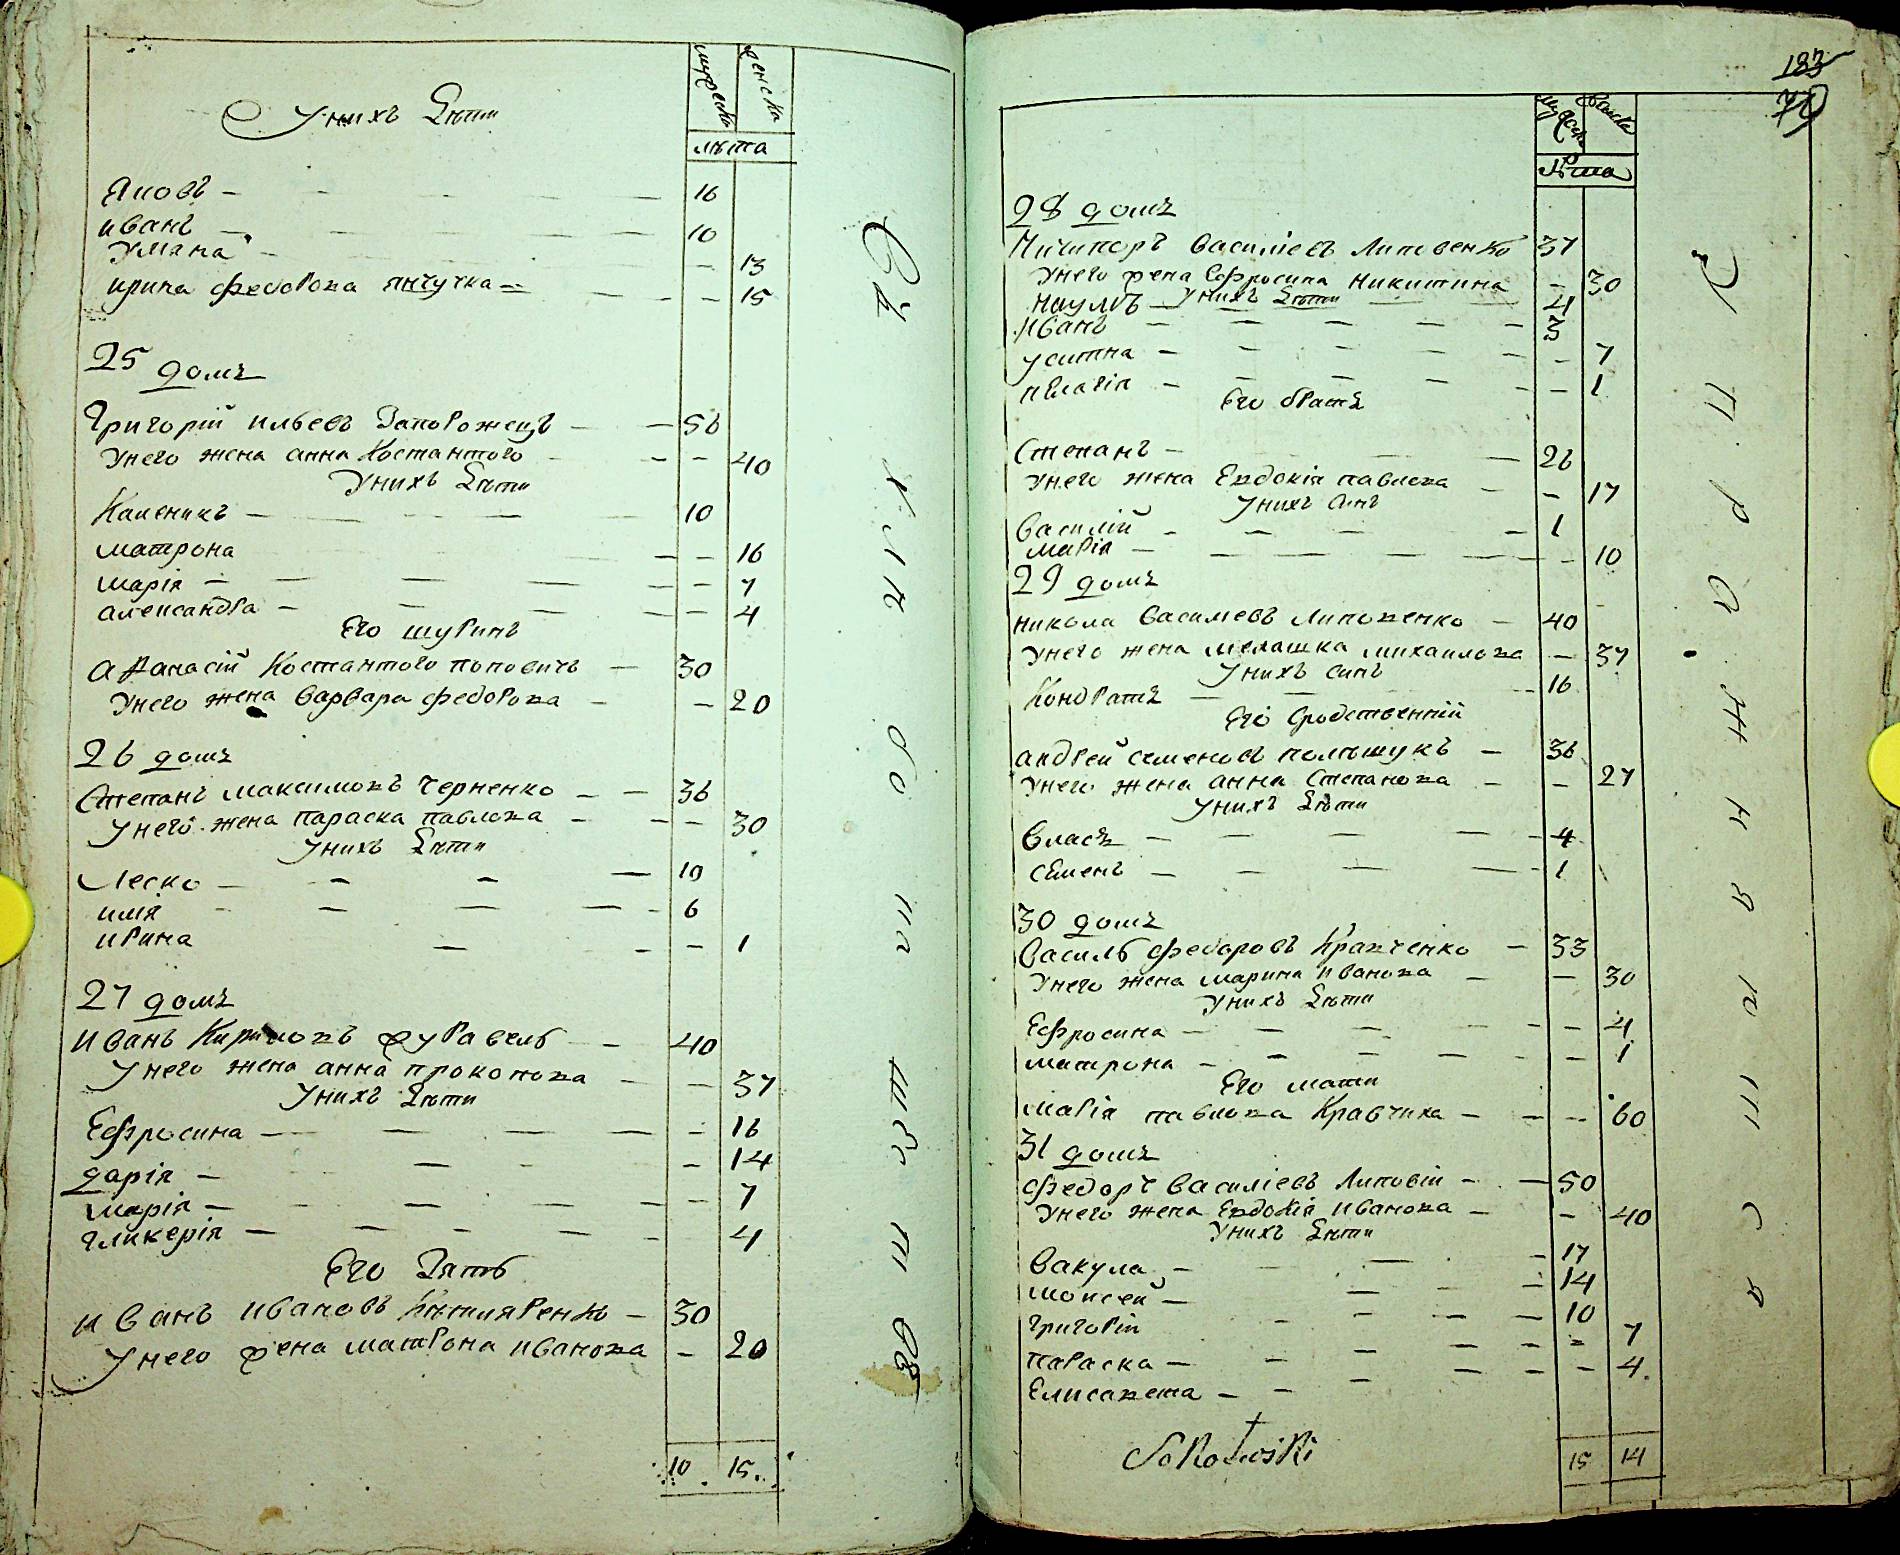 Унихъ Дѣти
мужеска
женска
лѣта
Яковъ 16
иванъ 10
Умяна 13
ирина федорова янчучка 15
25 домъ
Григорій ильевъ Запорожецъ 56
Унего жена анна Костантого 40
Унихъ Дѣти
Каленикъ 10
матрона 16
марія 7
александра 4
Его шуринъ
афанасій Костантого поповичъ 30
Унего жена варвара федорова 20
26 домъ
Степанъ максимовъ черненко 36
Унего жена параска павлова 30
Унихъ Дѣти
Леско 10
илія 6
ирина 1
27 домъ
иванъ Кириловъ журавель 40
Унего жена анна прокопова 37
Унихъ Дѣти
Ефросина 16
дарія 14
марія 7
гликерія 4
Его Зять
иванъ ивановъ 30
Унего жена матрона иванова 20
10 15
183
мужеск
женска
лѣта
28 домъ
Ничипоръ василіевъ Липовенко 37
Унего жена Ефросина никитина 30
Унихъ Дѣти
наумъ 4
иванъ 3
устина 7
пелагія 1
Его братъ
Степанъ 26
Унего жена Евдокія павлова 17
Унихъ синъ
василій 1
марія 10
29 домъ
никола василіевъ липовенко 40
Унего жена мелашка михаилова 37
Унихъ синъ
Кондратъ 16
Его Сродственній
андрей семеновъ полѣщукъ 36
Унего жена анна Степанова 27
Унихъ Дѣти
власъ 4
семенъ 1
30 домъ
василь федоровъ Кравченко 33
Унего жена марина иванова 30
Унихъ Дѣти
Ефросина 4
матрона 1
Его мати
марія павлова Кравчиха 60
31 домъ
федоръ василіевъ Липовій 50
Унего жена Евдокія иванова 40
Унихъ Дѣти
вакула 17
моисей 14
григорій 10
параска 7
Елисавета 4
15 14